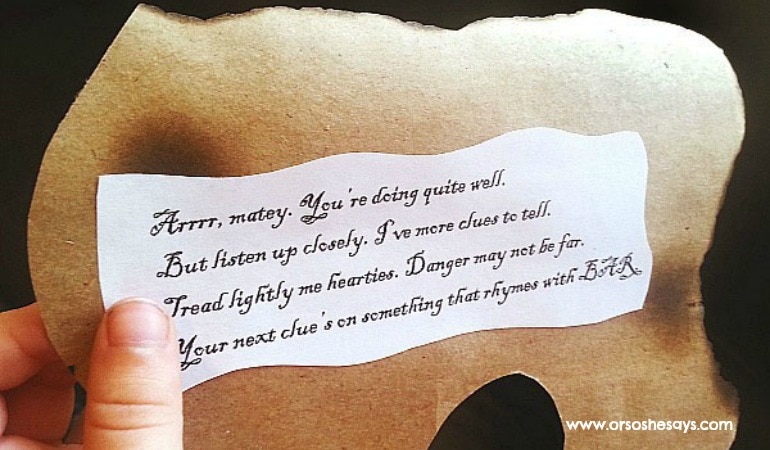 Arrrr, matey. You're doing quite well.
But listen up closely. I've more clues to tell.
Tread lightly me hearties. Danger may not be far.
Your next clue's on something that rhymes with BAR
www.orsoshesays.com